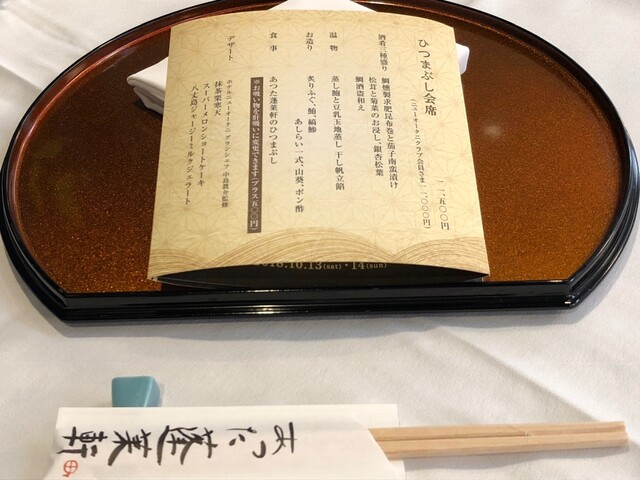 ひつまぶし会席
一一、五〇〇円
(ニューオータニクラブ会員さま 一一、〇〇〇円)
酒肴三種盛り
鯛燻製求肥昆布巻と茄子南蛮漬け
松茸と菊菜のお浸し、銀杏松葉
鯛酒盗和え
温物
蒸し鮑と豆乳玉地蒸し 干し帆立餡
お造り
炙りふぐ、鮪、縞鯵
あしらい一式、山葵、ポン酢
食事
あつた蓬莱軒のひつまぶし
※お吸い物を肝吸いに変更できます(プラス五〇〇円)
デザート
ホテルニューオータニ グランシェフ 中島眞介監修
抹茶栗寒天
スーパーメロンショートケーキ
八丈島ジャージーミルクジェラート
2018.10.13(sat)・14(sun)
あつた蓬莱軒